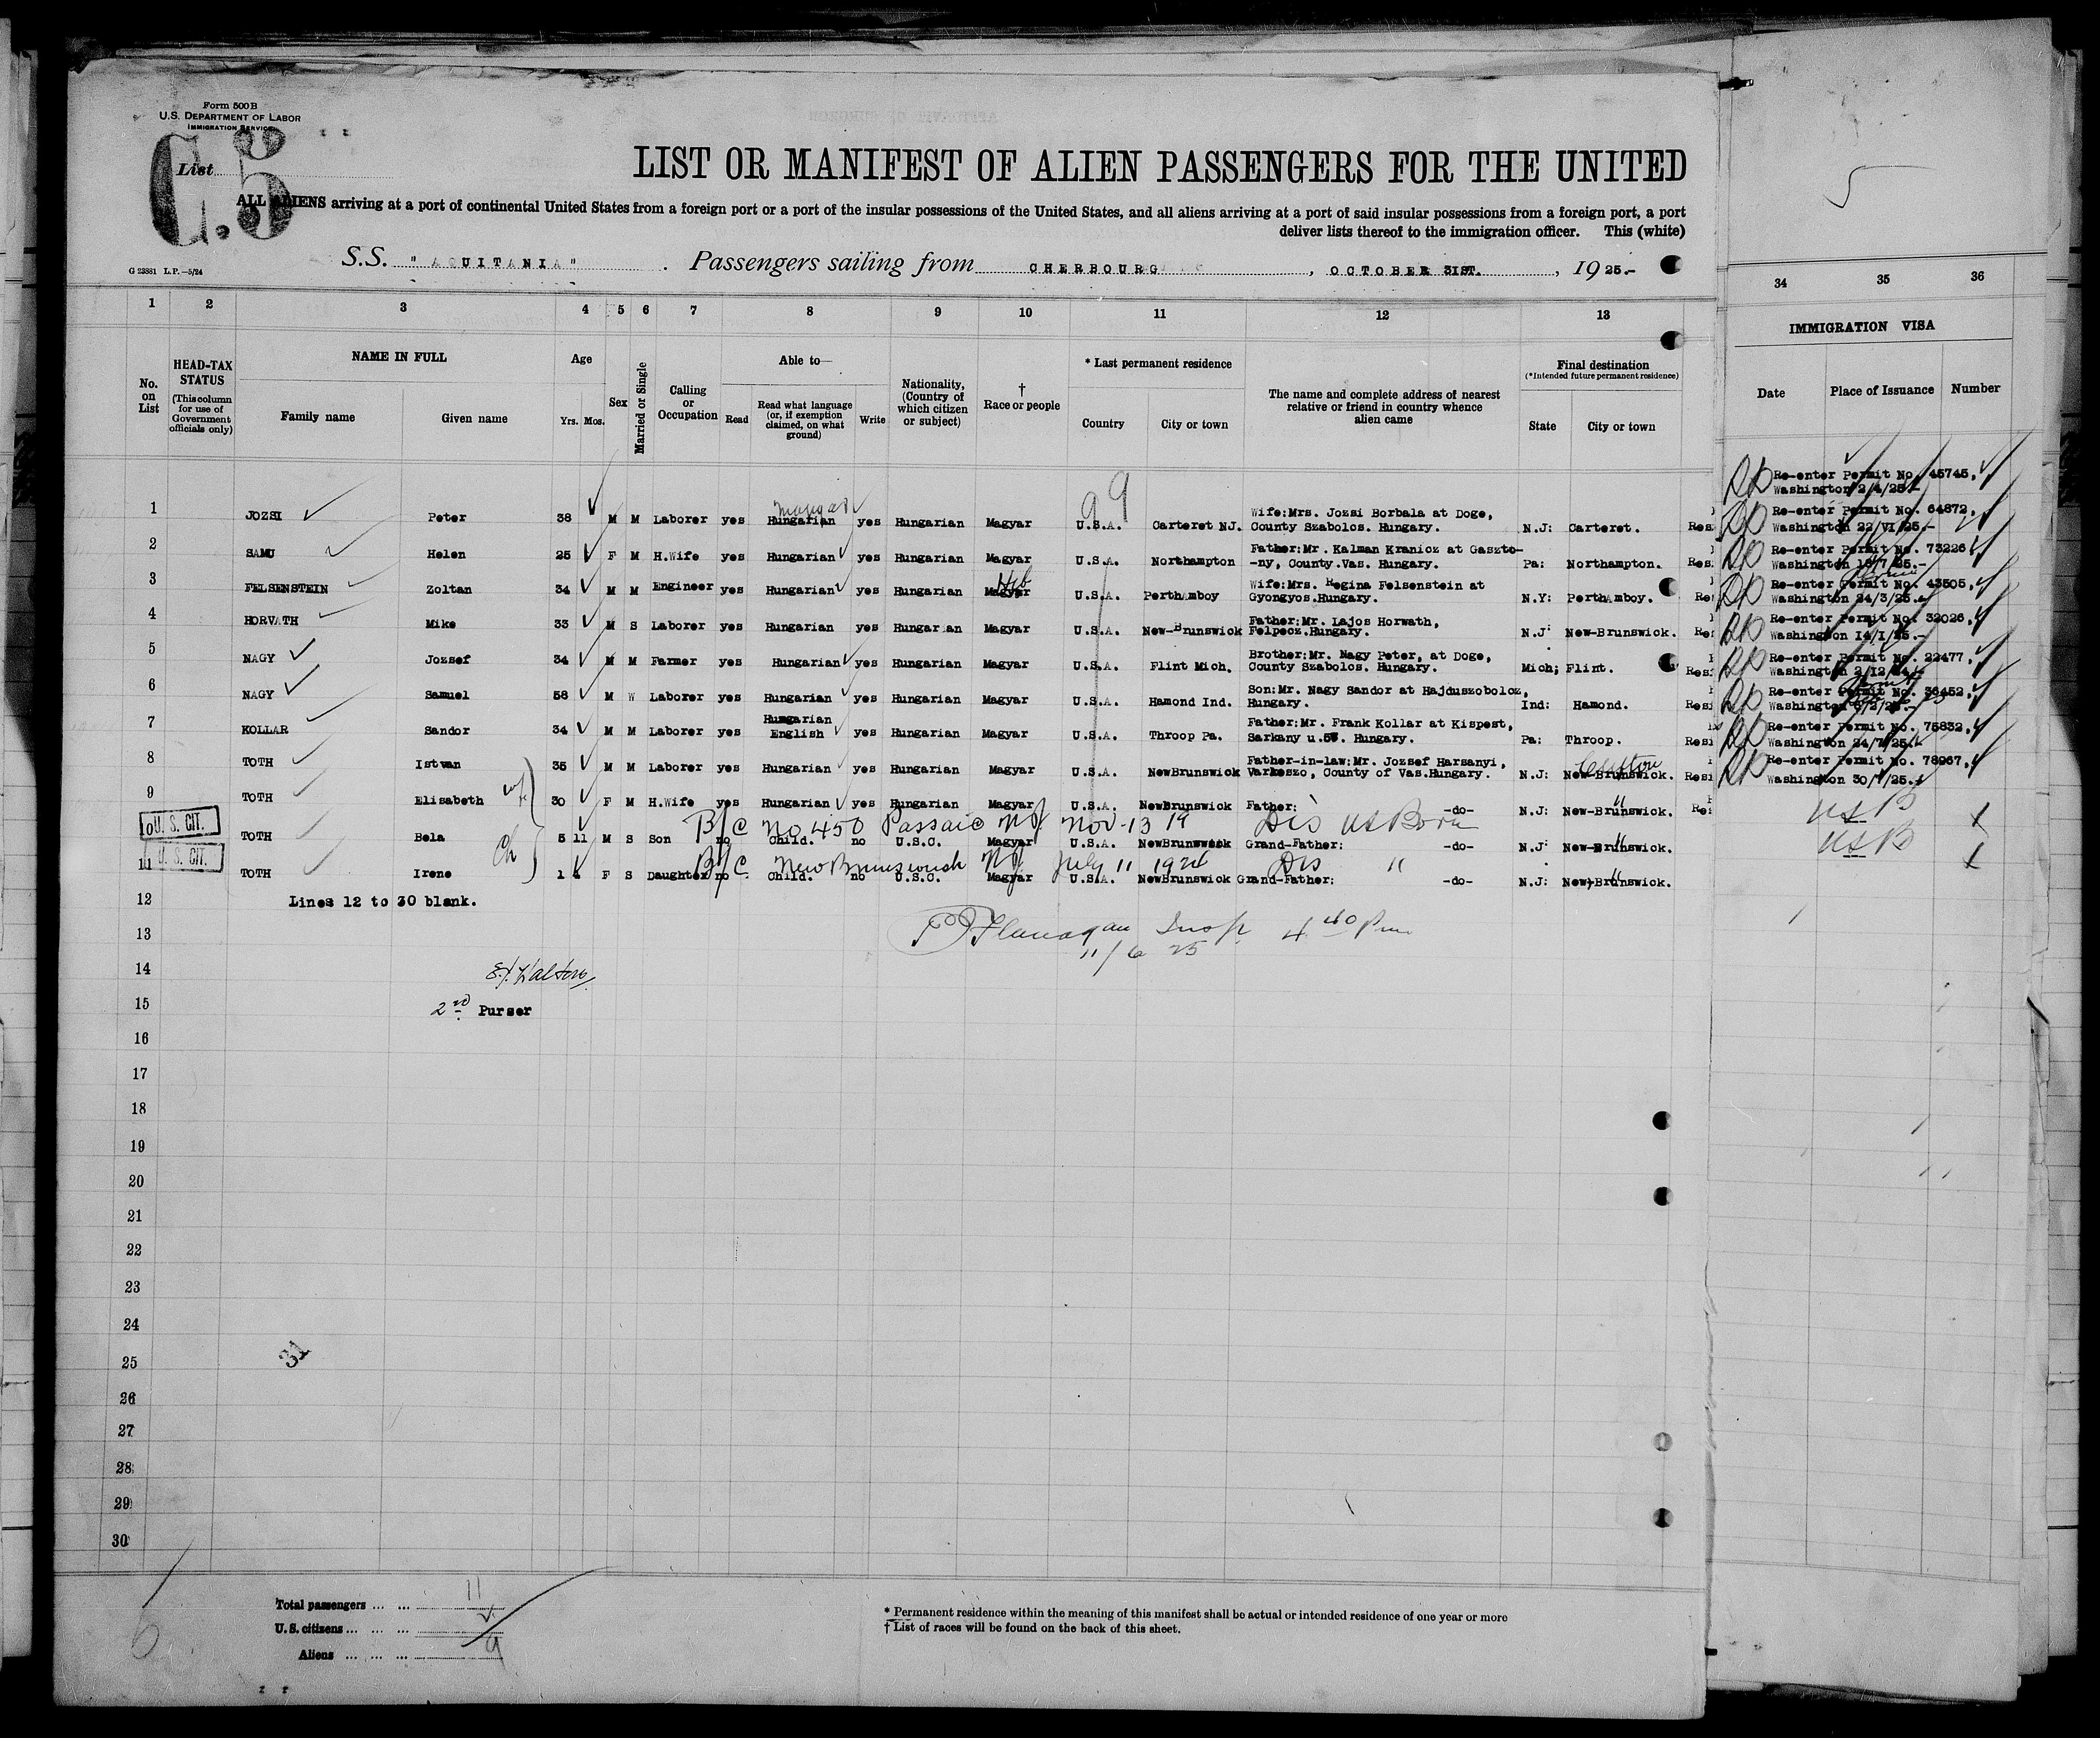 Form 500 B
U.S. DEPARTMENT OF LABOR
IMMIGRATION SERVICE
List
C.5
5
LIST OR MANIFEST OF ALIEN PASSENGERS FOR THE UNITED
ALL ALIENS arriving at a port of continental United States from a foreign port or a port of the insular possessions of the United States, and all aliens arriving at a port of said insular possessions from a foreign port, a port
deliver lists thereof to the immigration officer. This (white)
G 23881 L.P.—5/24
S.S. "AQUITANIA". Passengers sailing from CHERBOURG, OCTOBER 31ST., 1925.-
1 2 3 4 5 6 7 8 9 10 11 12 13 34 35 36
No. on List
HEAD-TAX STATUS (This column for use of Government officials only)
NAME IN FULL
Family name Given name
Age
Yrs. Mos.
Sex
Married or Single
Calling or Occupation
Able to—
Read
Read what language (or, if exemption claimed, on what ground)
Write
Nationality, (Country of which citizen or subject)
† Race or people
* Last permanent residence
Country City or town
The name and complete address of nearest relative or friend in country whence alien came
Final destination
(*Intended future permanent residence)
State City or town
IMMIGRATION VISA
Date Place of Issuance Number
99
Re-enter Permit No. 45745.
Washington 2/4/25.-
1 JOZSI Peter 38 M M Laborer yes Hungarian yes Hungarian Magyar U.S.A. Carteret NJ. Wife:Mrs. Jozsi Borbala at Doge, County Szabolos. Hungary. N.J: Carteret.
Re-enter Permit No. 64872.
Washington 22/VI/25.-
2 SAMU Helen 25 F M H.Wife yes Hungarian yes Hungarian Magyar U.S.A. Northampton Father:Mr. Kalman Kranicz at Gaszto--ny, County.Vas. Hungary. Pa: Northampton.
Re-enter Permit No. 73226
Washington 18/7/25.-
3 FELSENSTEIN Zoltan 34 M M Engineer yes Hungarian yes Hungarian Heb Magyar U.S.A. Perthamboy Wife:Mrs. Regina Felsenstein at Gyongyos.Hungary. N.Y: Perthamboy.
Re-enter Permit No. 43505.
Washington 24/3/25.-
4 HORVATH Mike 33 M S Laborer yes Hungarian yes Hungarian Magyar U.S.A. New-Brunswick Father:Mr. Lajos Horwath, Felpecz.Hungary. N.J: New-Brunswick.
Re-enter Permit No. 32026.
Washington 14/1/25.-
5 NAGY Jozsef 34 M M Farmer yes Hungarian yes Hungarian Magyar U.S.A. Flint Mich. Brother:Mr. Nagy Peter, at Doge, County Szabolos. Hungary. Mich; Flint.
Re-enter Permit No. 22477.
Washington 2/12/24.-
6 NAGY Samuel 58 M W Laborer yes Hungarian yes Hungarian Magyar U.S.A. Hamond Ind. Son:Mr. Nagy Sandor at Hajduszoboloz, Hungary. Ind: Hamond.
Re-enter Permit No. 36452.
Washington
7 KOLLAR Sandor 34 M M Laborer yes Hungarian English yes Hungarian Magyar U.S.A. Throop Pa. Father:Mr. Frank Kollar at Kispest, Sarkany u.57. Hungary. Pa: Throop.
Re-enter Permit No. 75832.
Washington 24/7/25.-
8 TOTH Istvan 35 M M Laborer yes Hungarian yes Hungarian Magyar U.S.A. NewBrunswick Father-in-law:Mr. Jozsef Harsanyi, Varkeszo, County of Vas.Hungary. N.J: New-Brunswick. Clifton
Re-enter Permit No. 78967.
Washington 30/7/25.-
9 TOTH Elisabeth wf 30 F M H.Wife yes Hungarian yes Hungarian Magyar U.S.A. NewBrunswick Father: -do- N.J: New-Brunswick. "
B/C No 450 Passaic NJ. Nov-13 19 Dis US Born USB
10 U.S. CIT. TOTH Bela 5 11 M S Son no Child. no U.S.C. Magyar U.S.A. NewBrunswick Grand-Father: -do- N.J: New-Brunswick. "
B/C. New Brunswick NJ July 11 1924 Dis " USB
11 U.S. CIT. TOTH Irene Ch 1 4 F S Daughter no Child. no U.S.C. Magyar U.S.A. NewBrunswick Grand-Father: -do- N.J: New-Brunswick. "
12 Lines 12 to 30 blank.
13 Flanagan Insp. 4 40 Pm
11/6 25
14
15 2nd Purser
16
17
18
19
20
21
22
23
24
25 31
26
27
28
29
30
Total passengers ... ... 11
U.S. citizens ... ... ... 2
Aliens ... ... ... 9
* Permanent residence within the meaning of this manifest shall be actual or intended residence of one year or more
† List of races will be found on the back of this sheet.
6